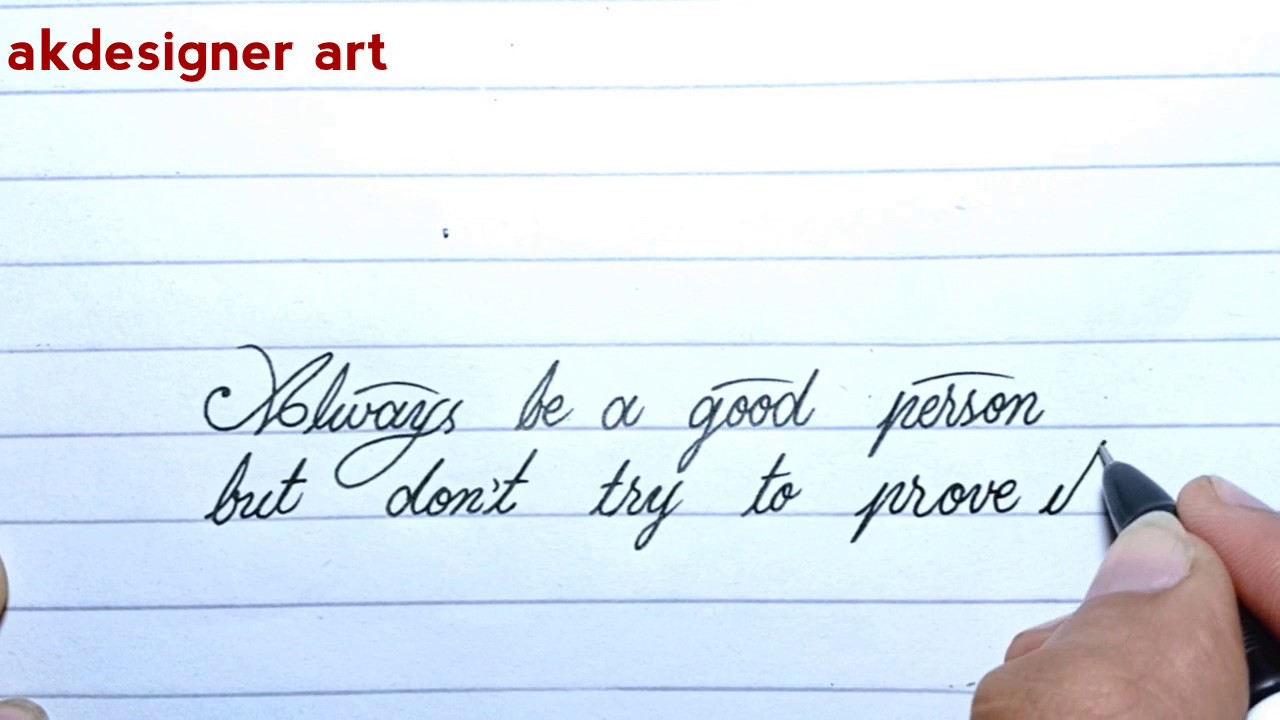 akdesigner art
Always be a good person
but don't try to prove